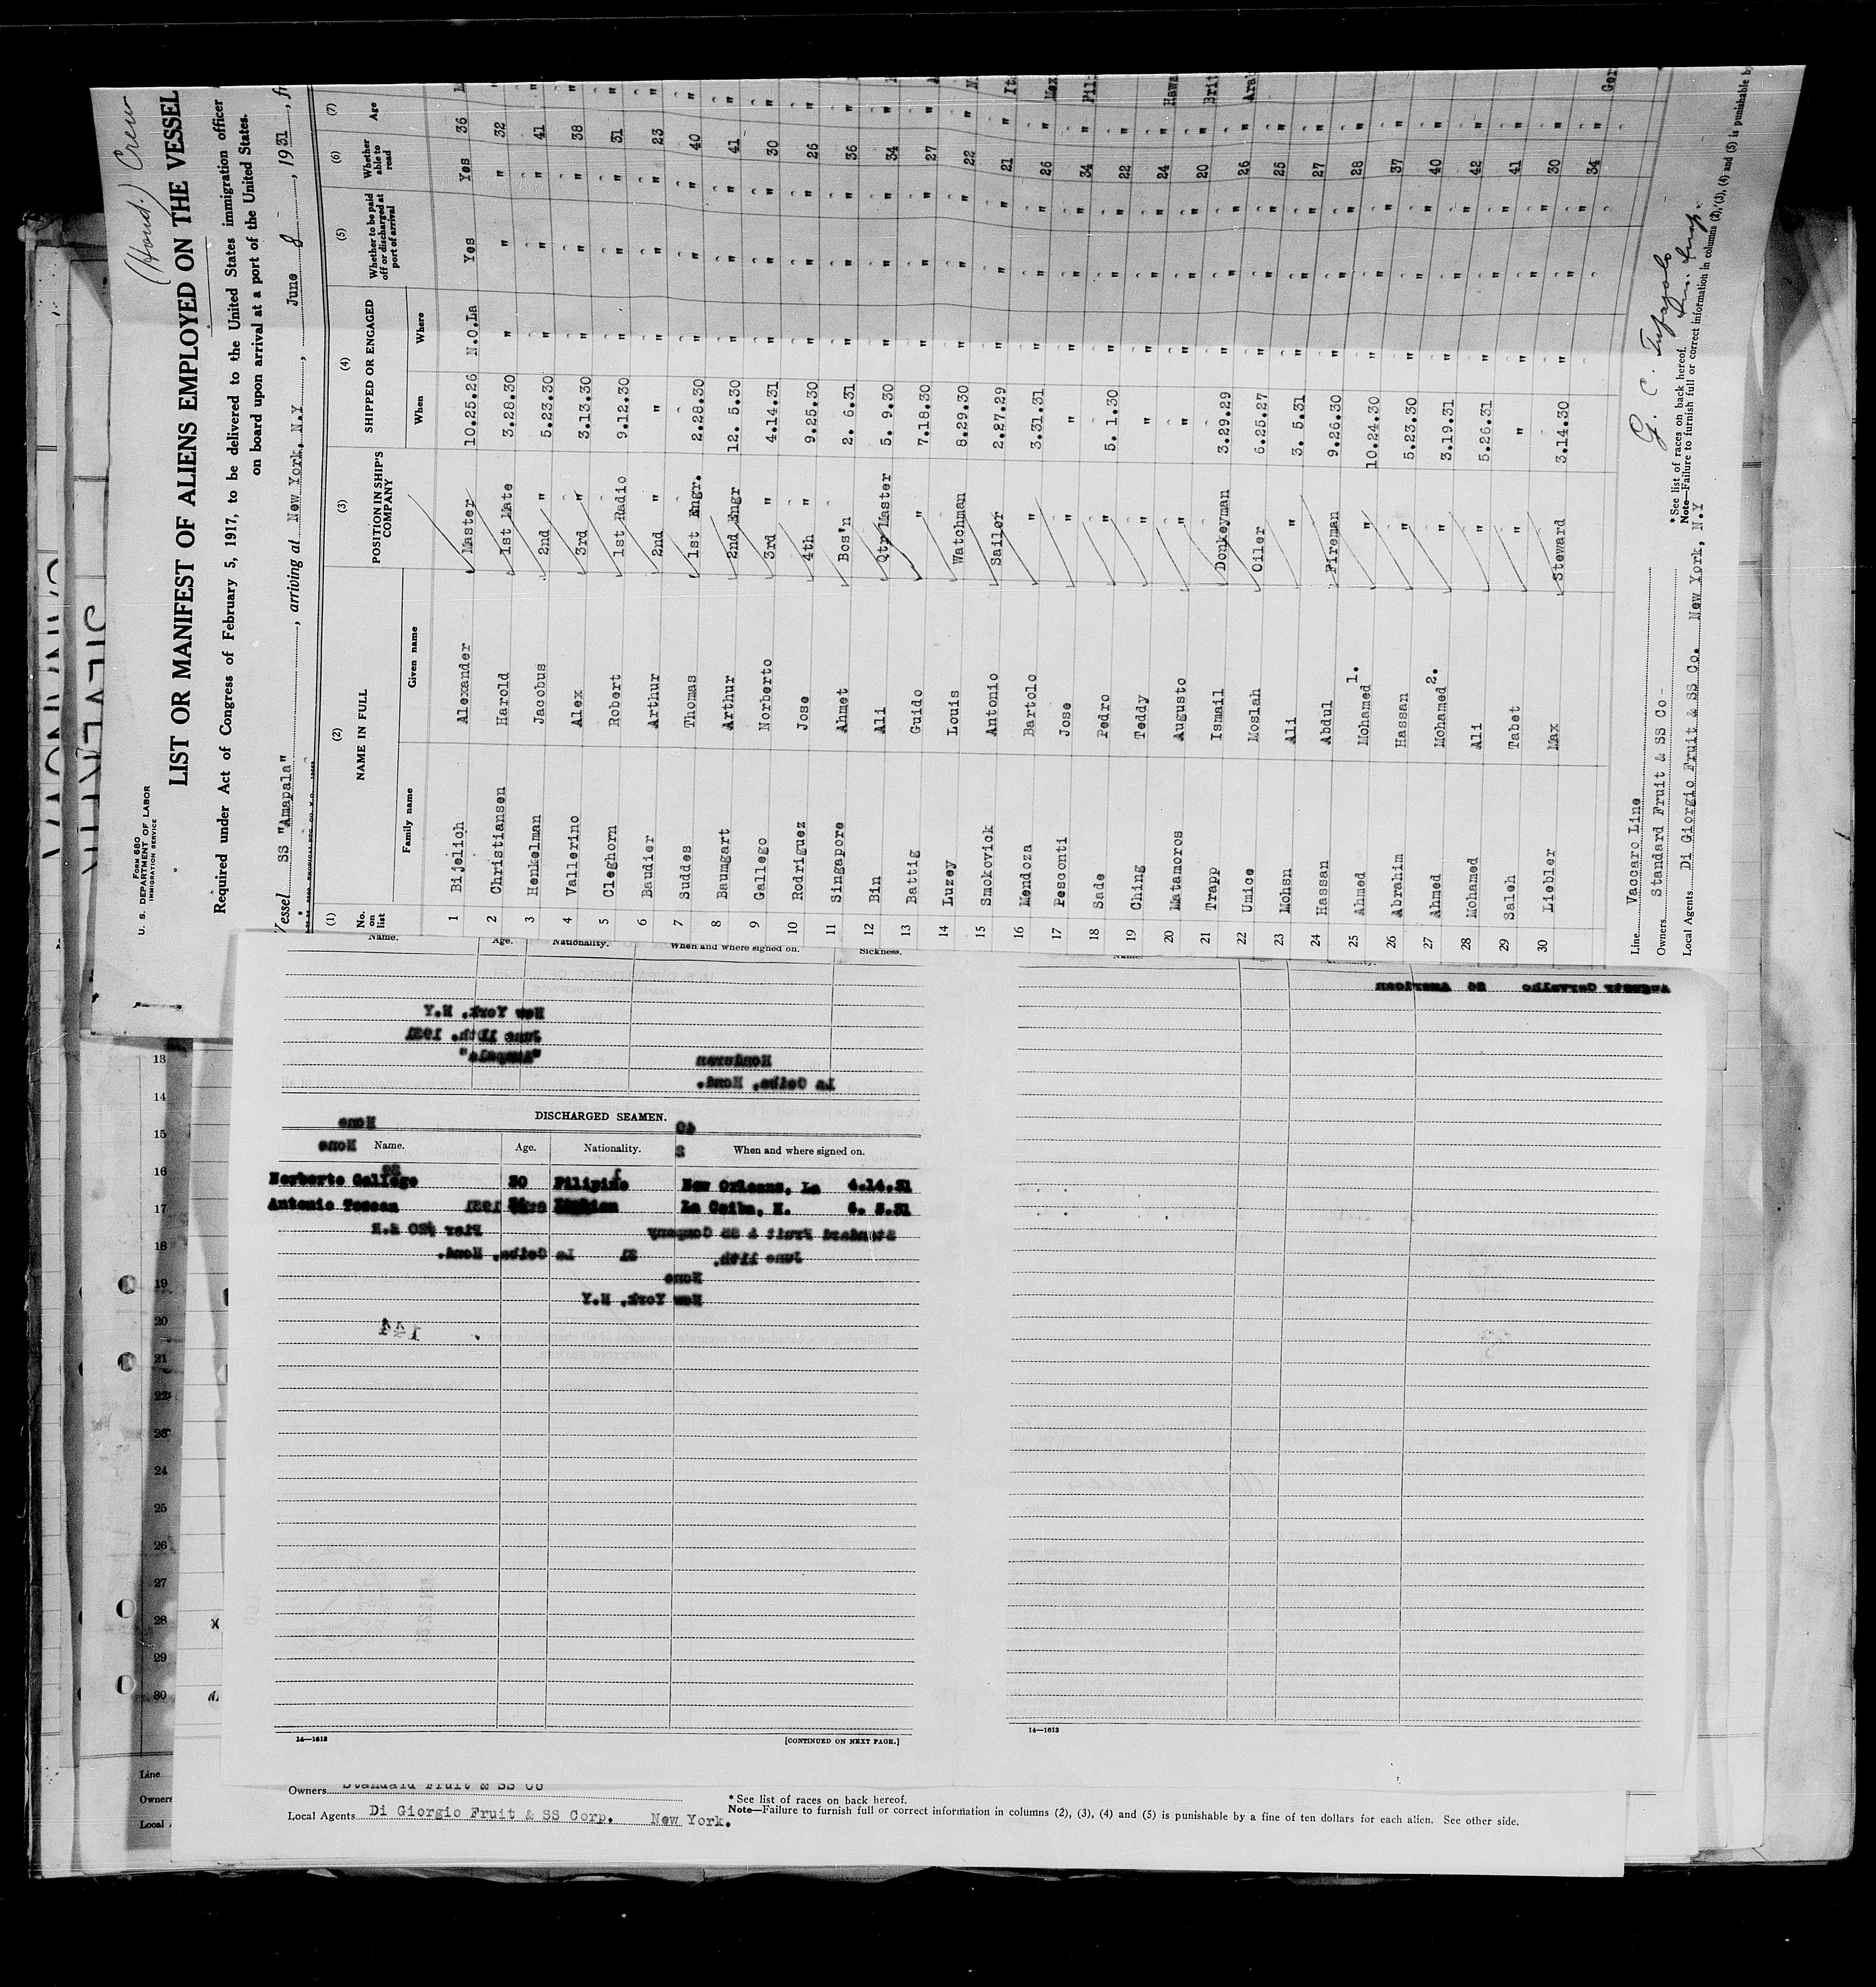 (Hond.) Crew
FORM 680
U. S. DEPARTMENT OF LABOR
IMMIGRATION SERVICE
LIST OR MANIFEST OF ALIENS EMPLOYED ON THE VESSEL
Required under Act of Congress of February 5, 1917, to be delivered to the United States immigration officer
on board upon arrival at a port of the United States.
Vessel SS "Amapala", arriving at New York, N.Y, June 8, 1931, fr
(1) (2) (3) (4) (5) (6) (7)
No. on list NAME IN FULL POSITION IN SHIP'S COMPANY SHIPPED OR ENGAGED Whether to be paid off or discharged at port of arrival Whether able to read Age
Family name Given name When Where
1 Bijelich Alexander Master 10.25.26 N.O.La Yes Yes 36
2 Christiansen Harold 1st Mate 3.28.30 " " " 32 "
3 Henkelman Jacobus 2nd " 5.23.30 " " " 41 "
4 Vallerino Alex 3rd " 3.13.30 " " " 38 "
5 Cleghorn Robert 1st Radio 9.12.30 " " " 31 "
6 Baudier Arthur 2nd " " " " " 23 "
7 Suddes Thomas 1st Engr. 2.28.30 " " " 40 "
8 Baumgart Arthur 2nd Engr 12. 5.30 " " " 41 "
9 Gallego Norberto 3rd " 4.14.31 " " " 30 "
10 Rodriguez Jose 4th " 9.25.30 " " " 26 "
11 Singapore Ahmet Bos'n 2. 6.31 " " " 36 "
12 Bin Ali Qtr Master 5. 9.30 " " " 34 "
13 Battig Guido " 7.18.30 " " " 27 "
14 Luzey Louis Watchman 8.29.30 " " " 22 "
15 Smokovick Antonio Sailor 2.27.29 " " " 21 "
16 Mendoza Bartolo " 3.31.31 " " " 26 "
17 Pesconti Jose " " " " " 34 "
18 Sade Pedro " 5. 1.30 " " " 22 "
19 Ching Teddy " " " " " 24 "
20 Matamoros Augusto " " " " " 20 "
21 Trapp Ismail Donkeyman 3.29.29 " " " 26 "
22 Umice Moslah Oiler 6.25.27 " " " 25 "
23 Mohsn Ali " 3. 5.31 " " " 27 "
24 Hassan Abdul Fireman 9.26.30 " " " 28 "
25 Ahmed Mohamed 1. " 10.24.30 " " " 37 "
26 Abrahim Hassan " 5.23.30 " " " 40 "
27 Ahmed Mohamed 2. " 3.19.31 " " " 42 "
28 Mohamed Ali " 5.26.31 " " " 41 "
29 Saleh Tabet " " " " " 30 "
30 Liebler Max Steward 3.14.30 " " " 34 "
Line Vaccaro Line
Owners Standard Fruit & SS Co
Local Agents Di Giorgio Fruit & SS Co. New York, N.Y
* See list of races on back hereof.
Note—Failure to furnish full or correct information in columns (2), (3), (4) and (5) is punishable by
Name. Age. Nationality. When and where signed on. Sickness.
New York, N.Y
June 11th. 1931
"Amapala"
Honduran
La Ceiba, Hond.
DISCHARGED SEAMEN.
None
40
None
2
Name. Age. Nationality. When and where signed on.
Norberto Gallego 30 Filipino New Orleans, La 4.14.31
Antonio Toscan La Ceiba, H. 6. 2.31
Pier #20 E.R
Standard Fruit & SS Company
La Ceiba, Hond.
June 11th. 31
None
New York, N.Y
144
14—1613
[CONTINUED ON NEXT PAGE.]
August Carvalho 26 American
14—1613
13
14
15
16
17
18
19
20
21
22
23
24
25
26
27
28
29
30
Line
Owners
Local
Owners Standard Fruit & SS Co
Local Agents Di Giorgio Fruit & SS Corp. New York.
* See list of races on back hereof.
Note—Failure to furnish full or correct information in columns (2), (3), (4) and (5) is punishable by a fine of ten dollars for each alien. See other side.